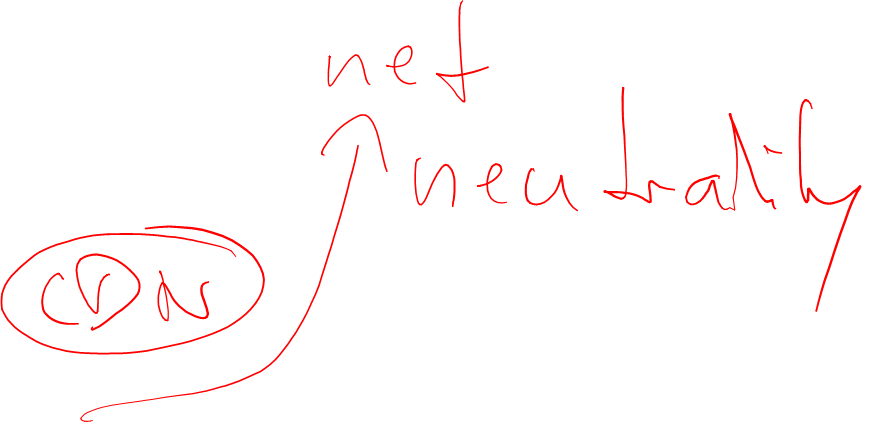 net
neutrality
CDN